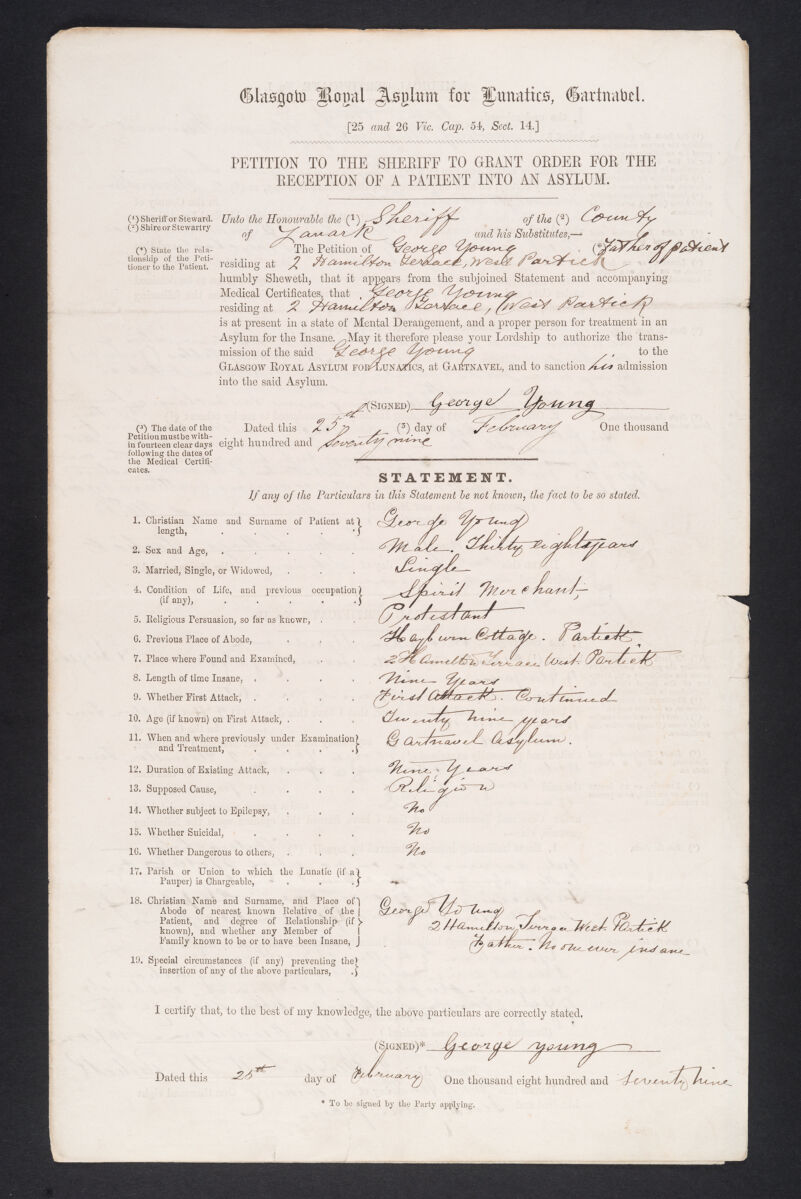 Glasgow Royal Asylum for Lunatics, Gartnavel.
[25 and 26 Vic. Cap. 54, Sect. 14.]
PETITION TO THE SHERIFF TO GRANT ORDER FOR THE
RECEPTION OF A PATIENT INTO AN ASYLUM.
(¹) Sheriff or Steward.
(²) Shire or Stewartry
Unto the Honourable the (¹) Sheriff of the (²) County
of Lanark and his Substitutes,—
(*) State the rela-
tionship of the Peti-
tioner to the Patient.
The Petition of George Young (*Father of patient
residing at 2 Hamilton Terrace, West Partick
humbly Sheweth, that it appears from the subjoined Statement and accompanying
Medical Certificates, that George Young
residing at 2 Hamilton Terrace, West Partick
is at present in a state of Mental Derangement, and a proper person for treatment in an
Asylum for the Insane. May it therefore please your Lordship to authorize the trans-
mission of the said George Young to the
GLASGOW ROYAL ASYLUM FOR LUNATICS, at GARTNAVEL, and to sanction his admission
into the said Asylum.
(SIGNED) George Young
(³) The date of the
Petition must be with-
in fourteen clear days
following the dates of
the Medical Certifi-
cates.
Dated this 25th (³) day of February One thousand
eight hundred and Seventy nine
STATEMENT.
If any of the Particulars in this Statement be not known, the fact to be so stated.
1. Christian Name and Surname of Patient at
length, George Young
2. Sex and Age, Male. Thirty eight years
3. Married, Single, or Widowed, Single
4. Condition of Life, and previous occupation
(if any), Spirit Merchant
5. Religious Persuasion, so far as known, Protestant
6. Previous Place of Abode, Hayburn Cottage. Partick
7. Place where Found and Examined, 2 Hamilton Terrace West Partick
8. Length of time Insane, Nine Years
9. Whether First Attack, First Attack. Continued
10. Age (if known) on First Attack, Twenty nine years
11. When and where previously under Examination
and Treatment, Gartnavel Asylum.
12. Duration of Existing Attack, Nine Years
13. Supposed Cause, Religion
14. Whether subject to Epilepsy, No
15. Whether Suicidal, No
16. Whether Dangerous to others, No
17. Parish or Union to which the Lunatic (if a
Pauper) is Chargeable, -
18. Christian Name and Surname, and Place of
Abode of nearest known Relative of the
Patient, and degree of Relationship (if
known), and whether any Member of
Family known to be or to have been Insane,
George Young
2 Hamilton Terrace West Partick
Father. No one ever insane
19. Special circumstances (if any) preventing the
insertion of any of the above particulars,
I certify that, to the best of my knowledge, the above particulars are correctly stated.
(SIGNED)* George Young
Dated this 25th day of February One thousand eight hundred and Seventy nine
* To be signed by the Party applying.